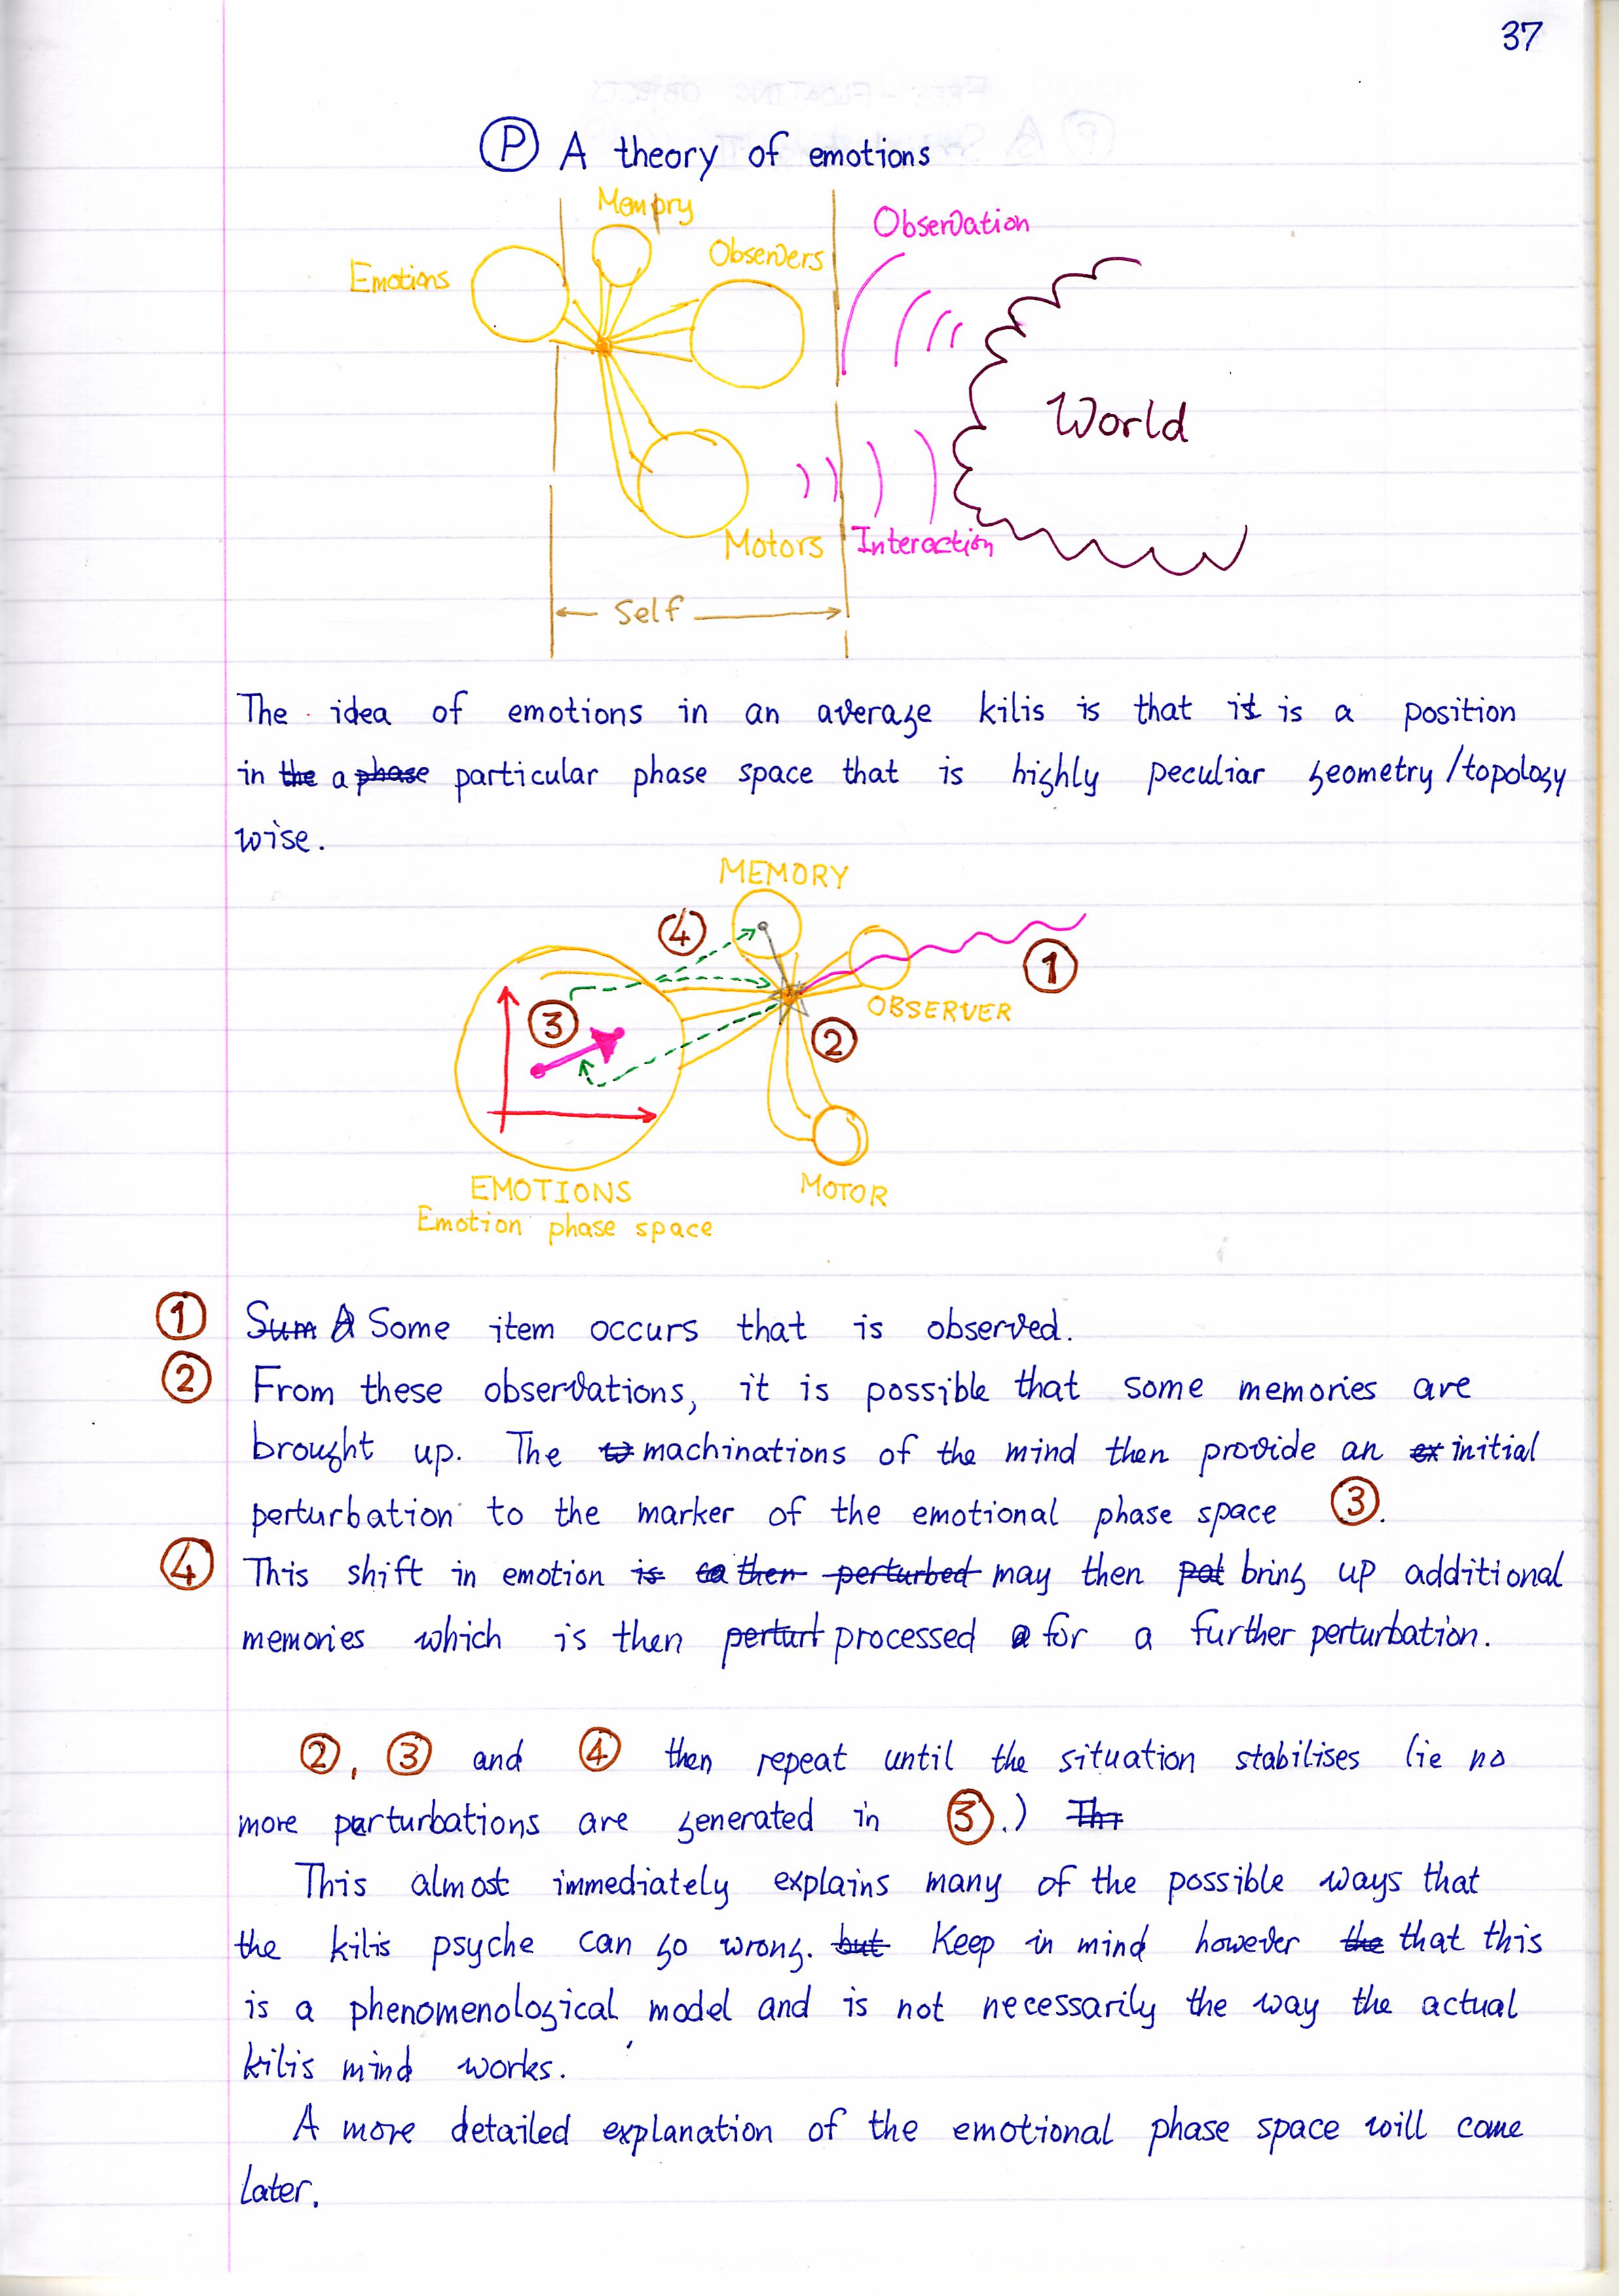 37
Ⓟ A theory of emotions
Memory
Observation
Emotions
Observers
World
Motors
Interaction
Self
The idea of emotions in an average kilis is that it is a position
in ~~the~~ a ~~phase~~ particular phase space that is highly peculiar geometry/topology
wise.
MEMORY
④
①
③
OBSERVER
②
EMOTIONS
MOTOR
Emotion phase space
① ~~Sum A~~ Some item occurs that is observed.
② From these observations, it is possible that some memories are
brought up. The machinations of the mind then provide an ~~ex~~ initial
perturbation to the marker of the emotional phase space ③.
④ This shift in emotion ~~is~~ ~~then~~ ~~perturbed~~ may then bring up additional
memories which is then ~~perturt~~ processed for a further perturbation.
②, ③ and ④ then repeat until the situation stabilises (ie no
more perturbations are generated in ③.)
This almost immediately explains many of the possible ways that
the kilis psyche can go wrong. ~~but~~ Keep in mind however ~~the~~ that this
is a phenomenological model and is not necessarily the way the actual
kilis mind works.
A more detailed explanation of the emotional phase space will come
later.